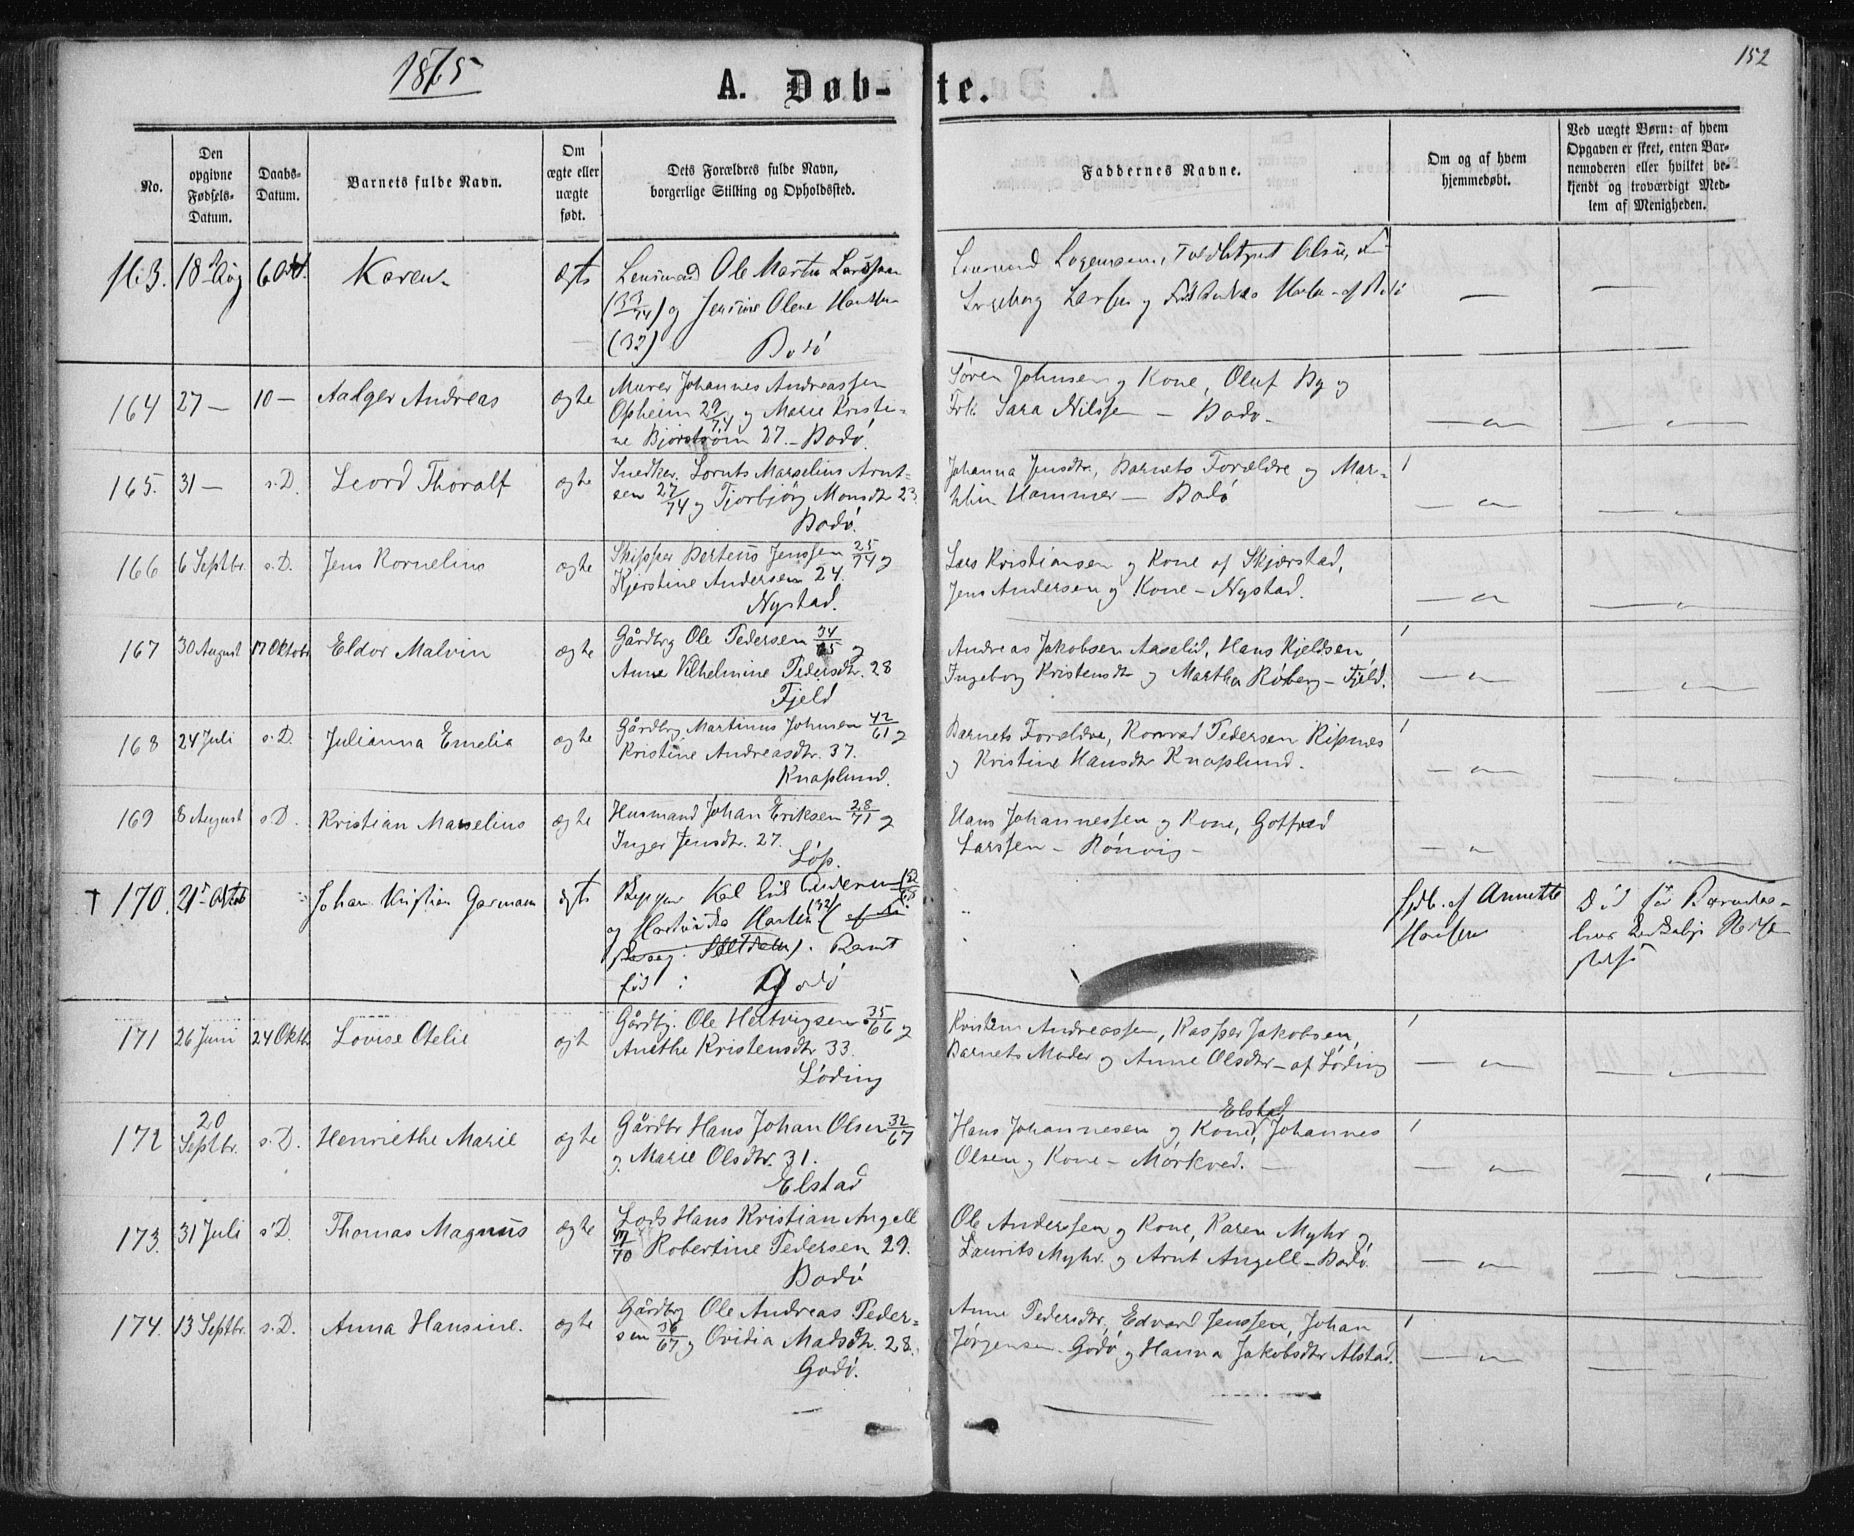 1875
152
A. Døb-te.
No.
Den opgivne Fødsels-Datum.
Daabs-Datum.
Barnets fulde Navn.
Om ægte eller uægte født.
Dets Forældres fulde Navn, borgerlige Stilling og Opholdssted.
Faddernes Navne.
Om og af hvem hjemmedøbt.
Ved uægte Børn: af hvem Opgaven er skeet, enten Barnemoderen eller hvilket bekjendt og troværdigt Medlem af Menigheden.
163. 18 Aug Karen ægte
Lensmand Ole Martin
og Jensine Olene
(32) Bodø
Lensmand
Ingeborg Larsen og
164 27 — 10 — Aalger Andreas ægte
Murer Johannes Andreassen
Opheim 29/74 og Marie Kristi-
ne Bjørstrøm 27. — Bodø.
Søren Johnsen og Kone, Oluf By og
Frk. Sara Nilssen — Bodø.
165. 31 — s.D. Leord Thoralf ægte
Snedker Lornts Marselius Arnt-
sen 27/74 og Torbjørg Monsdtr 23
Bodø.
Johanna Jensdtr., Barnets Forældre og Mar-
Hammer — Bodø
166 6 Septbr. s.D. Jens Kornelius ægte
Skipper Berteus Jenssen 25/74 og
Kjerstine Andersen 24.
Nystad.
Lars Kristiansen og Kone af Skjærstad,
Jens Andersen og Kone — Nystad.
167 30 August 17 Oktobr. Eldor Malvin ægte
Gårdbrg Ole Pedersen 34/65 og
Anne Vilhelmine Pedersdtr. 28
Fjeld
Andreas Jakobsen Aaselid, Hans Kjeldsen,
Ingeborg Kristensdtr og Martha Røberg — Fjeld.
168 24 Juli s.D. Julianna Emelia ægte
Gårdbrg. Martinus Johnsen 42/61 og
Kristine Andreasdtr. 37.
Knaplund.
Barnets Forældre, Konrad Pedersen Ripnes
og Kristine Hansdtr Knaplund.
169 8 August s.D. Kristian Marselius ægte
Husmand Johan Eriksen 28/71 og
Inger Jensdtr. 27.
Løp.
Hans Johannessen og Kone, Gotfred
Larssen — Rønvig —
† 170. 21 Johan Kristian Garmann ægte
og (32)
Bodø
hjdb. af Annette
Hansen
171 26 Juni 24 Oktb. Lovise Otelie ægt
Gårdbg. Ole Hertvigsen 35/66 og
Anethe Kristensdtr 33.
Løding
Kristen Andreassen, Kasper Jakobsen,
Barnets Moder og Anne Olsdtr — af Løding
172 20 Septbr. s.D. Henriethe Marie ægte
Gårdbr Hans Johan Olsen 32/67
og Marie Olsdtr. 31.
Elstad
Elstad
Hans Johannesen og Kone, Johannes
Olsen og Kone — Mørkved. —
173. 31 Juli s.D. Thomas Magnus ægte
Lods Hans Kristian Angell
Robertine Pedersen 29.
Bodø
Ole Anderssen og Kone, Karen Myhr og
Laurits Myhr og Arnt Angell — Bodø.
174. 13 Septbr. s.D. Anna Hansine. ægte
Gårdbrg Ole Andreas Peder-
sen 36/67 og Ovidia Madsdtr. 28.
Godø.
Anne Pedersdtr., Edvard Jenssen, Johan
Jørgensen Godø og Hanna Jakobsdtr Alstad.